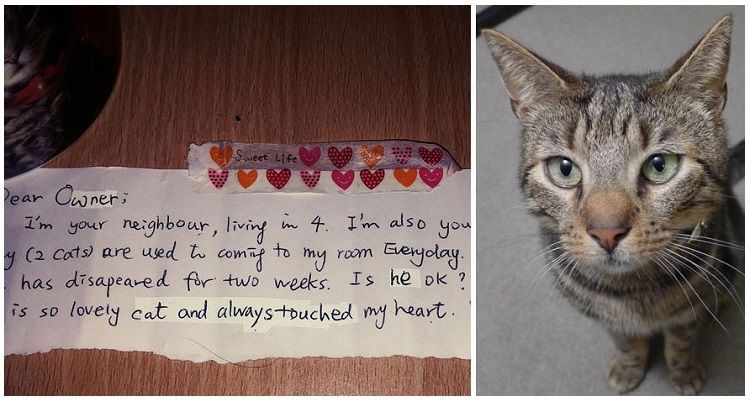 Sweet Life
Dear Owner;
I'm your neighbour, living in 4. I'm also you
y (2 cats) are used to coming to my room Everyday.
has disapeared for two weeks. Is he ok?
is so lovely cat and always touched my heart.